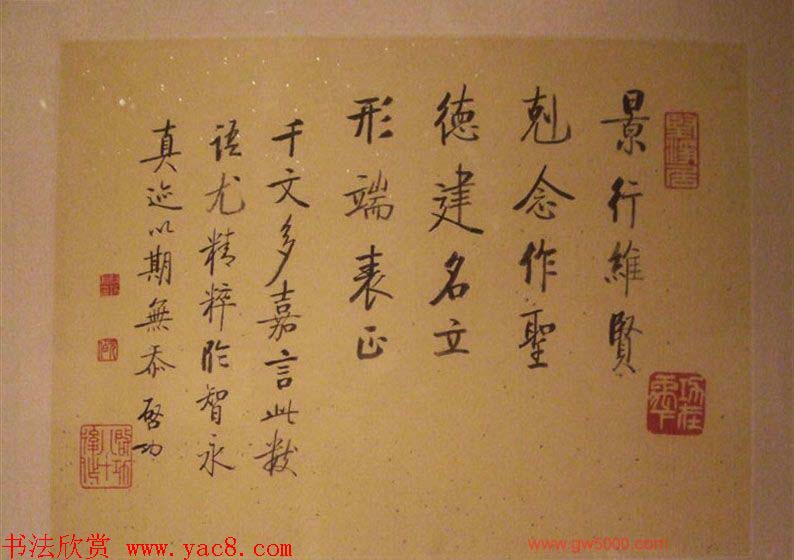 景行維賢
剋念作聖
德建名立
形端表正
千文多嘉言此數
語尤精粹臨智永
真迹以期無忝啓功
书法欣赏 www.yac8.com
www.gw5000.com